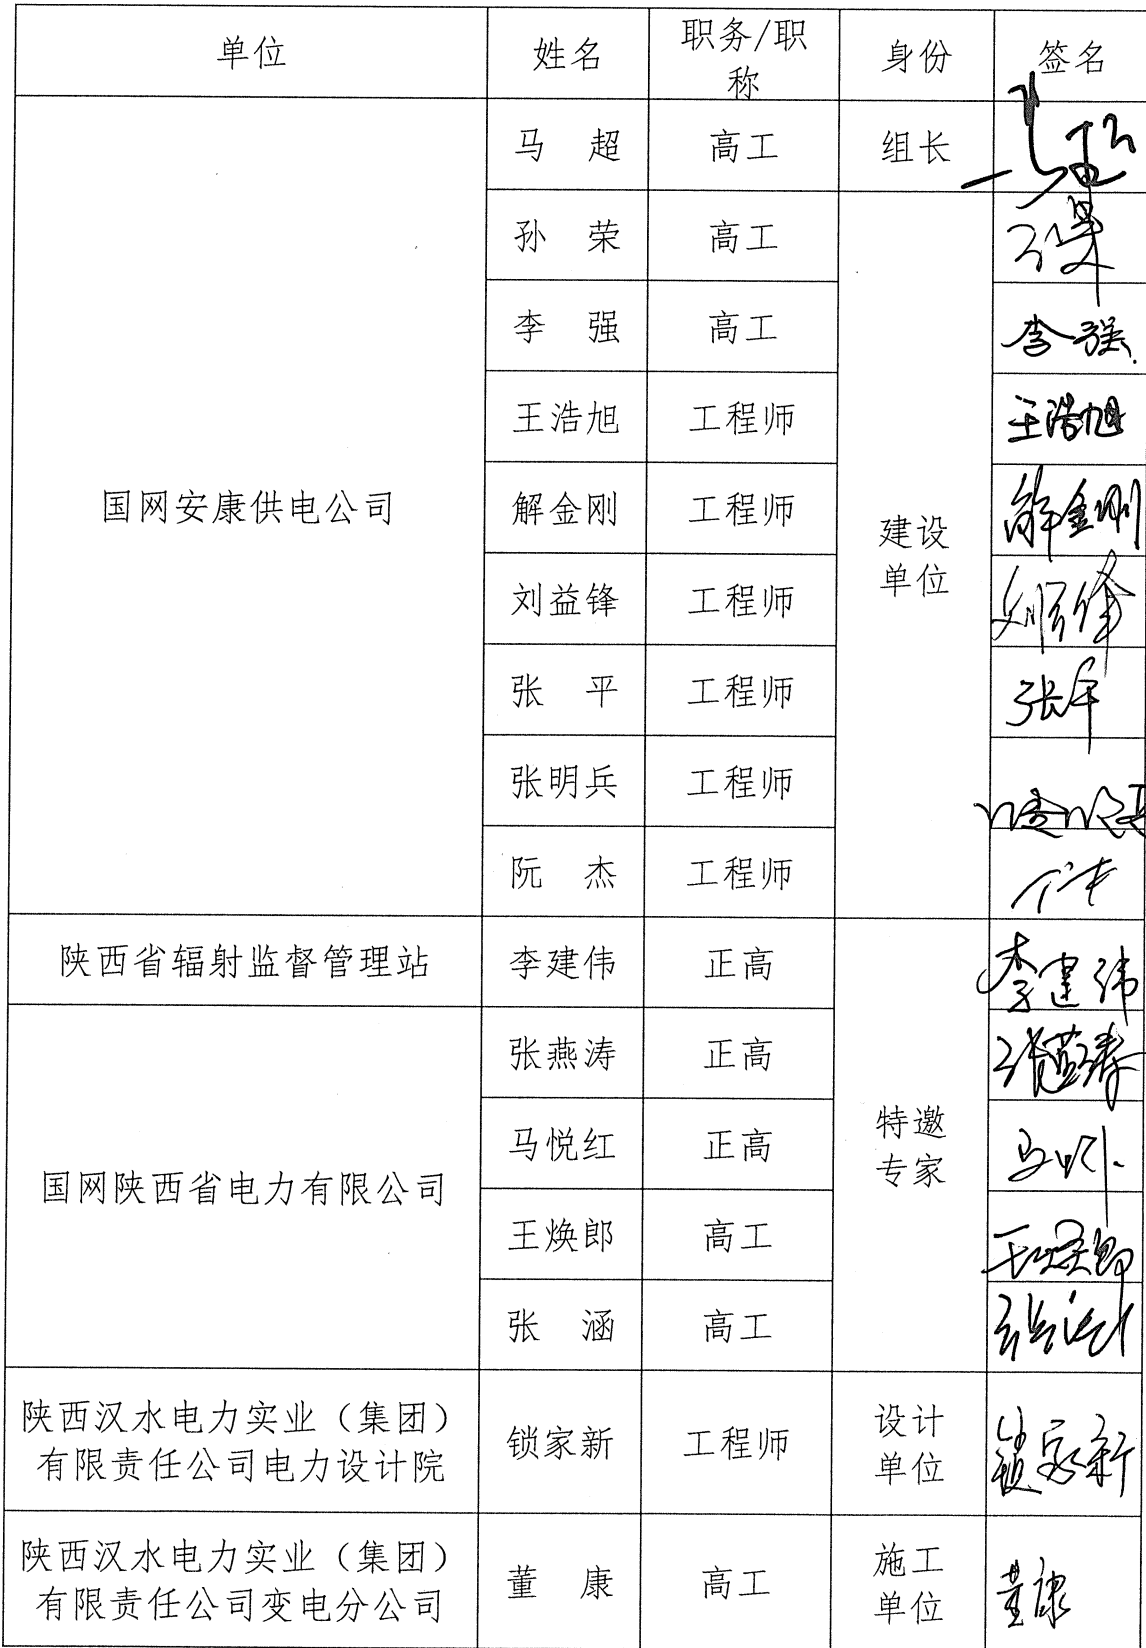 单位 姓名 职务/职称 身份 签名
国网安康供电公司 马 超 高工 组长 马超
孙 荣 高工 建设单位 孙荣
李 强 高工 李强
王浩旭 工程师 王浩旭
解金刚 工程师 解金刚
刘益锋 工程师 刘益锋
张 平 工程师 张平
张明兵 工程师
阮 杰 工程师
陕西省辐射监督管理站 李建伟 正高 特邀专家 李建伟
国网陕西省电力有限公司 张燕涛 正高 张燕涛
马悦红 正高
王焕郎 高工 王焕郎
张 涵 高工 张涵
陕西汉水电力实业（集团）
有限责任公司电力设计院 锁家新 工程师 设计单位 锁家新
陕西汉水电力实业（集团）
有限责任公司变电分公司 董 康 高工 施工单位 董康